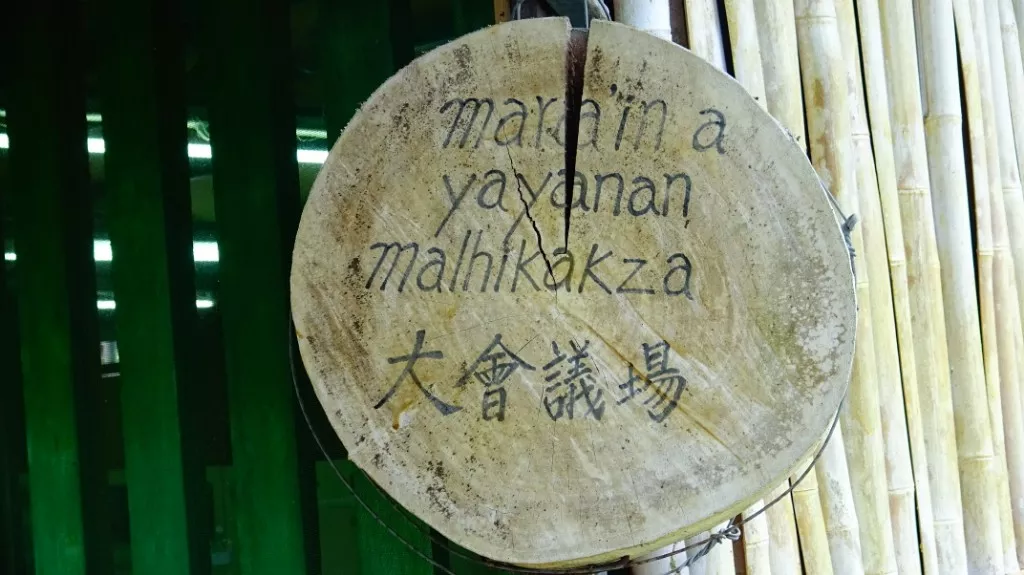 mara'in a
yayanan
malhikakza
大會議場